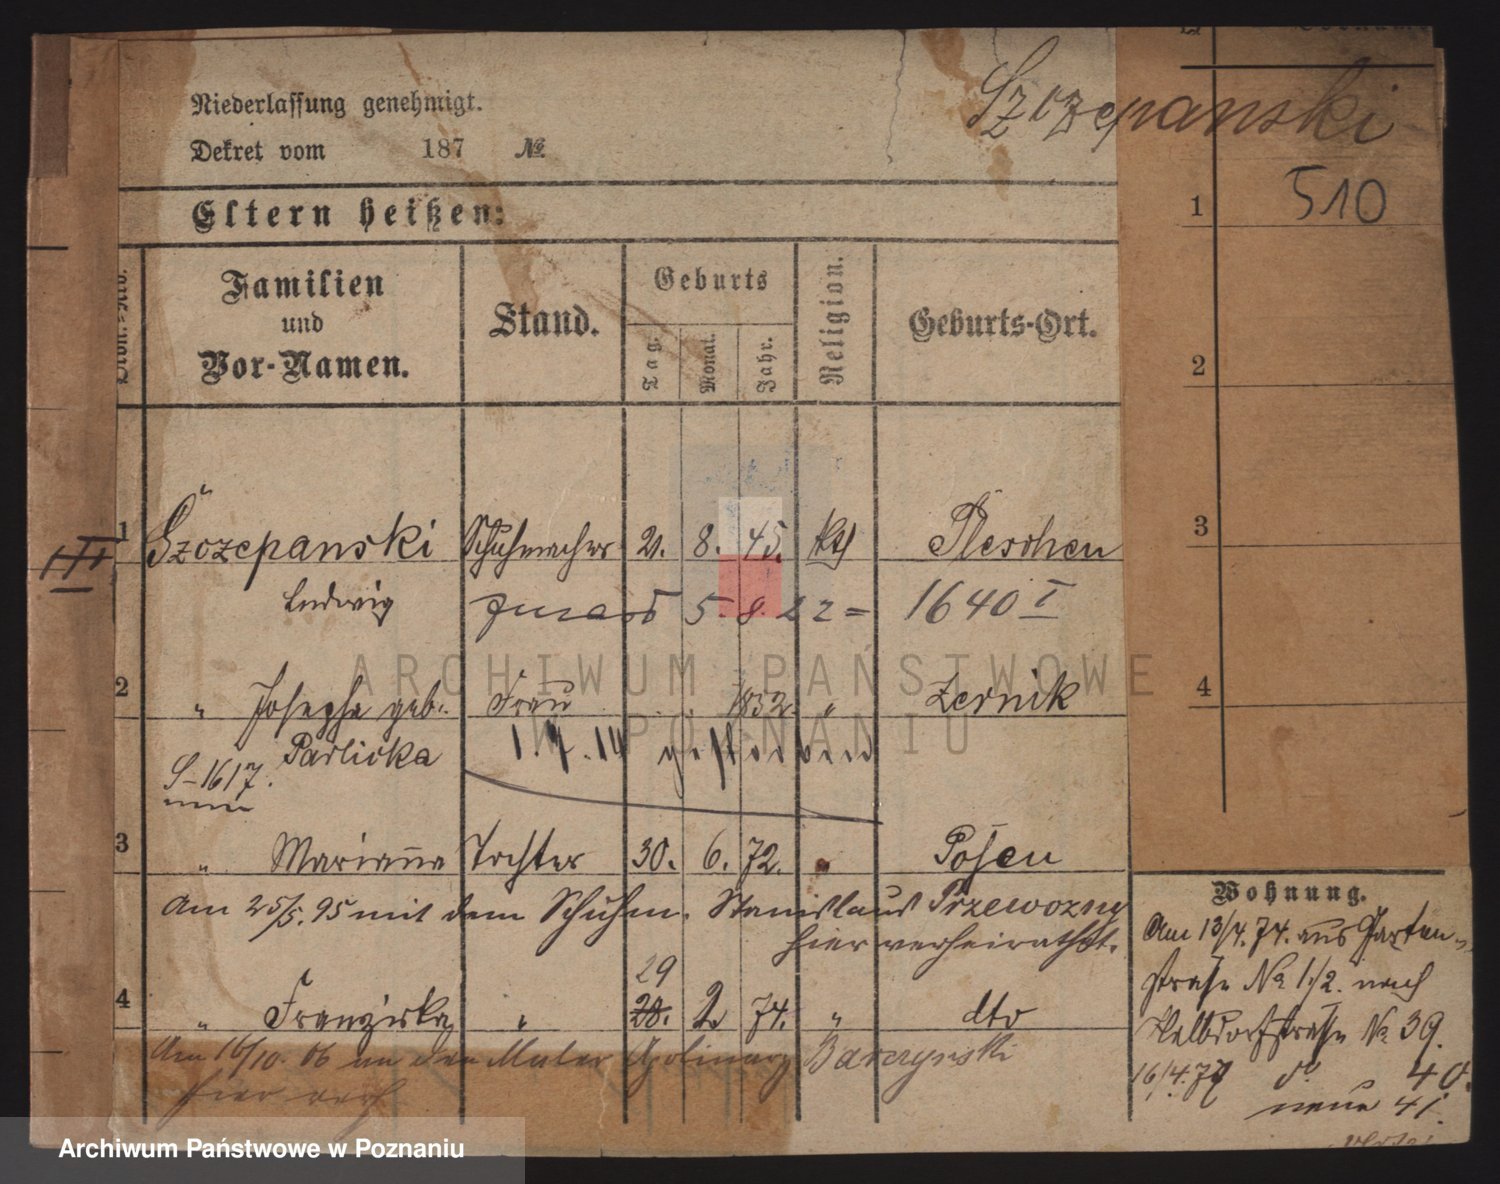 Niederlassung genehmigt.
Dekret vom 187 №
Szczepanski
510
Eltern heißen:
Familien und Vor-Namen.
Stand.
Geburts
Tag.
Monat.
Jahr.
Religion.
Geburts-Ort.
1
2
3
4
III
1 Szczepanski Schuhmacher 21. 8. 45. kth Pleschen
Ludwig 5. 8. 22 = 1640 I
2 " Josepha geb. Frau 1852 " Zernik
Parlicka 1. 4. 14 gestorben
S-1617.
3 " Marianna Tochter 30. 6. 72. " Posen
Am 25/5. 95 mit dem Schuhm. Stanislaus Przewozny
hier verheirathet.
29
4 " Franziska " 28. 2. 74. " dto
Am 16/10. 06 an den Maler Apolinary Barczynski
hier verh
Wohnung.
Am 13/4. 74. aus Garten-
straße No 1/2. nach
Halbdorfstraße No 39.
16/4. 77 do 40.
neue 41.
ARCHIWUM PAŃSTWOWE
W POZNANIU
Archiwum Państwowe w Poznaniu